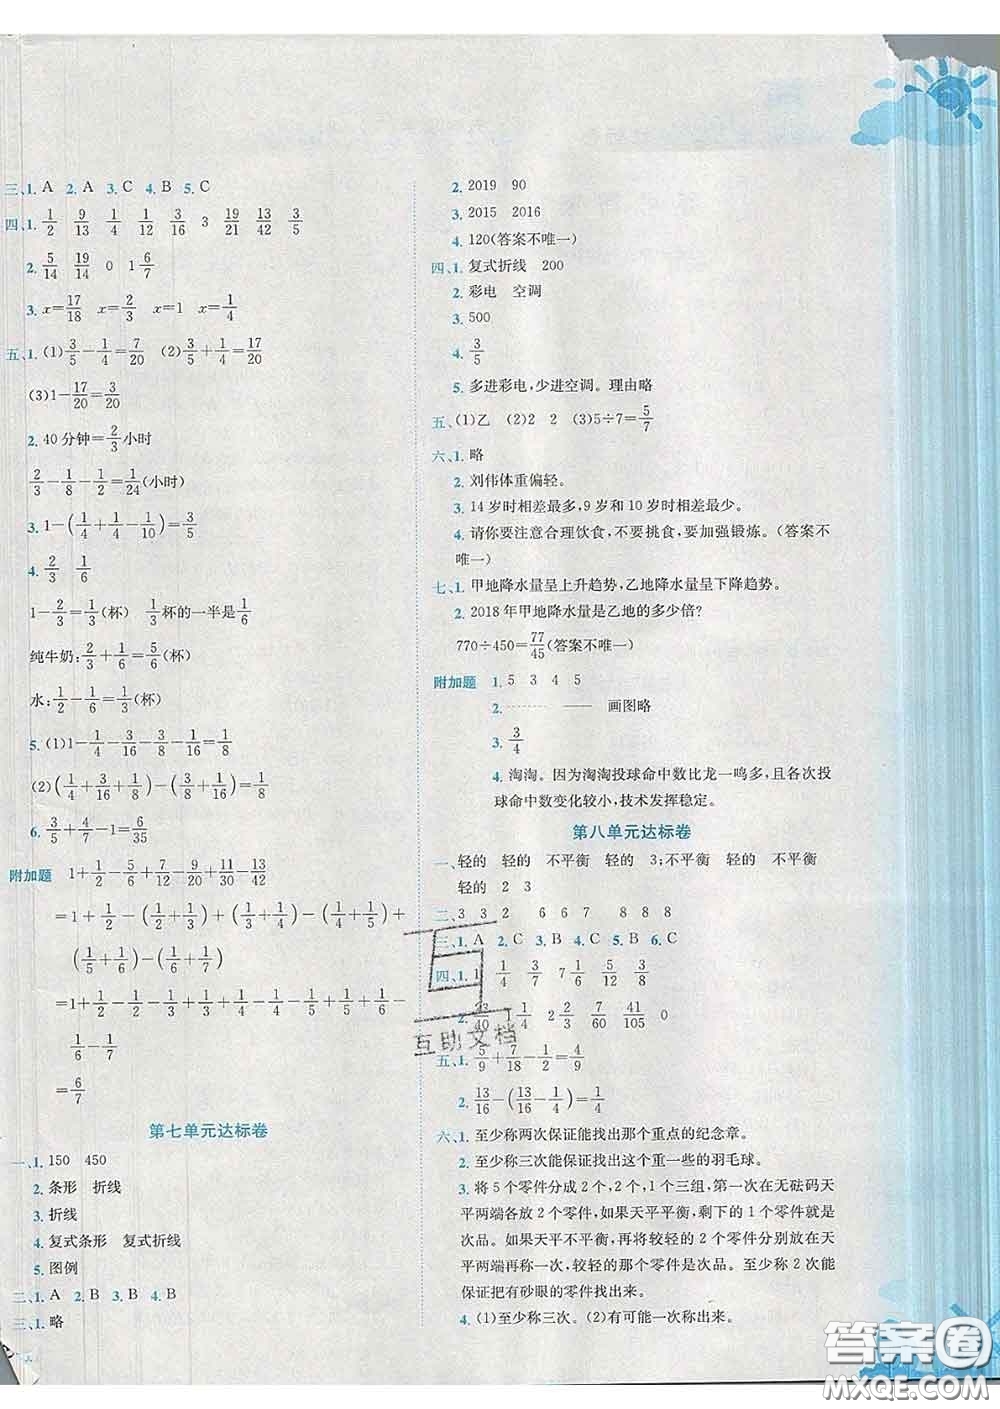 三、1. A 2. A 3. C 4. B 5. C
四、1. 1/2 9/13 1/4 1/12 3/16 3 19/21 13/42 3/5
2. 5/14 19/14 0 1 6/7
3. x=17/18 x=2/3 x=1 x=1/4
五、1. (1)3/5-1/4=7/20 (2)3/5+1/4=17/20
(3)1-17/20=3/20
2. 40分钟=2/3小时
2/3-1/8-1/2=1/24(小时)
3. 1-(1/4+1/4-1/10)=3/5
4. 2/3 1/6
1-2/3=1/3(杯) 1/3杯的一半是1/6
纯牛奶:2/3+1/6=5/6(杯)
水:1/2-1/6=1/3(杯)
5. (1)1-1/4-3/16-3/8-1/16=1/8
(2)(1/4+3/16+3/8)-(3/8+1/16)=1/8
6. 3/5+4/7-1=6/35
附加题 1+1/2-5/6+7/12-9/20+11/30-13/42
=1+1/2-(1/2+1/3)+(1/3+1/4)-(1/4+1/5)+
(1/5+1/6)-(1/6+1/7)
=1+1/2-1/2-1/3+1/3+1/4-1/4-1/5+1/5+1/6-
1/6-1/7
=6/7
第七单元达标卷
一、1. 150 450
2. 条形 折线
3. 折线
4. 复式条形 复式折线
5. 图例
二、1. A 2. B 3. B 4. B
三、1. 略
2. 2019 90
3. 2015 2016
4. 120(答案不唯一)
四、1. 复式折线 200
2. 彩电 空调
3. 500
4. 3/5
5. 多进彩电,少进空调。理由略
五、(1)乙 (2)2 2 (3)5÷7=5/7
六、1. 略
2. 刘伟体重偏轻。
3. 14岁时相差最多,9岁和10岁时相差最少。
4. 请你要注意合理饮食,不要挑食,要加强锻炼。(答案不
唯一)
七、1. 甲地降水量呈上升趋势,乙地降水量呈下降趋势。
2. 2018年甲地降水量是乙地的多少倍?
770÷450=77/45(答案不唯一)
附加题 1. 5 3 4 5
2. ------- —— 画图略
3. 3/4
4. 淘淘。因为淘淘投球命中数比龙一鸣多,且各次投
球命中数变化较小,技术发挥稳定。
第八单元达标卷
一、轻的 轻的 不平衡 轻的 3;不平衡 轻的 不平衡
轻的 2 3
二、3 3 2 6 6 7 8 8 8
三、1. A 2. C 3. B 4. C 5. B 6. C
四、1. 1 1/4 3/7 7 1/8 5/12 3/8
2. 33/40 1 1/4 2 2/3 7/60 41/105 0
五、1. 5/9+7/18-1/2=4/9
2. 13/16-(13/16-1/4)=1/4
六、1. 至少称两次保证能找出那个重点的纪念章。
2. 至少称三次能保证找出这个重一些的羽毛球。
3. 将5个零件分成2个,2个,1个三组,首先在无砝码天
平两端各放2个零件,如果天平平衡,剩下的1个零件就是
次品。如果天平不平衡,再将较轻的2个零件分别放在天
平两端再称一次,较轻的那个零件就是次品。至少称2次能
保证把有砂眼的零件找出来。
4. (1)至少称三次。 (2)有可能一次称出来。
互助文档
答案圈
MXQE.COM